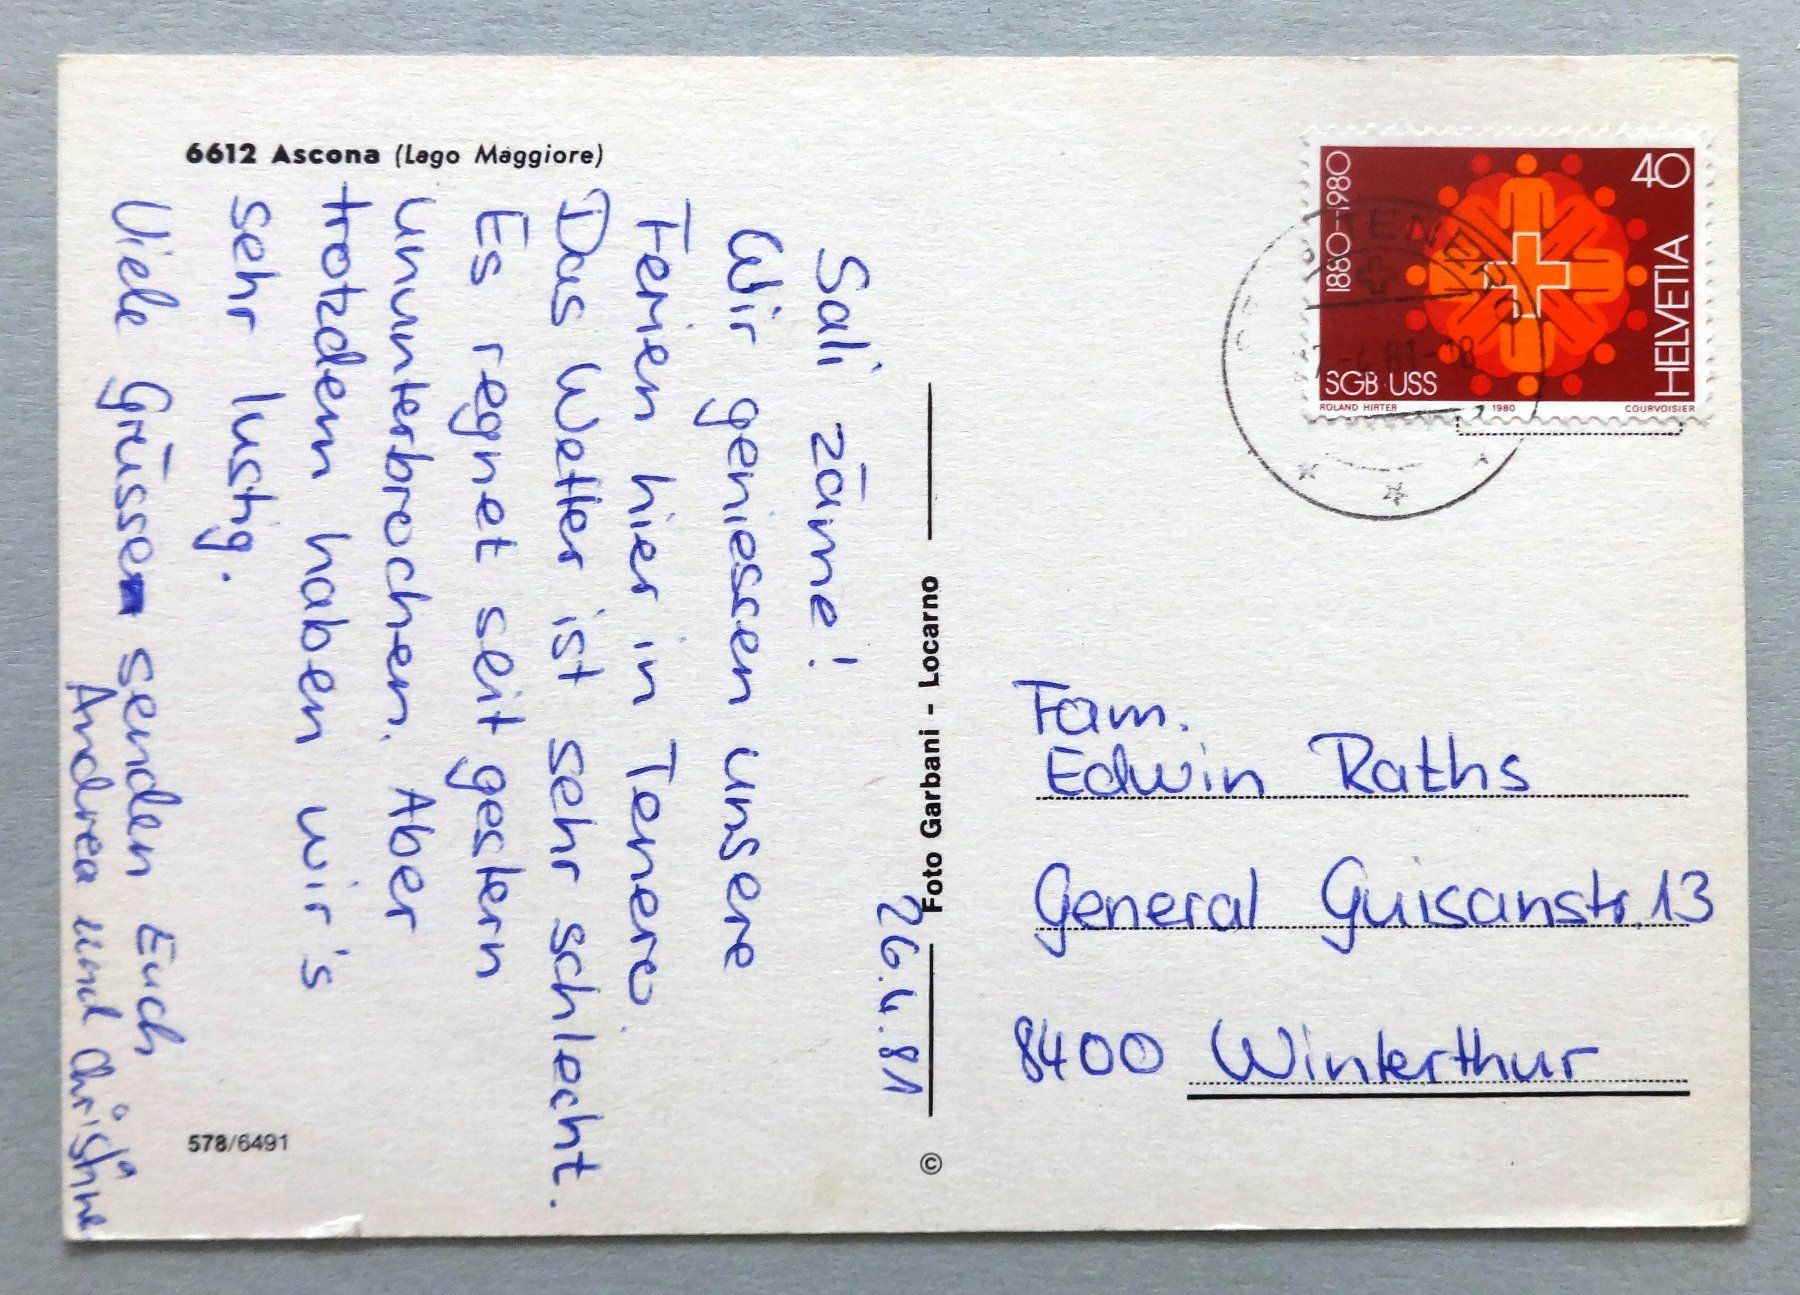 6612 Ascona (Lago Maggiore)
26.4.81
Sali zäme!
Wir geniessen unsere
Ferien hier in Tenero.
Das Wetter ist sehr schlecht.
Es regnet seit gestern
ununterbrochen. Aber
trotzdem haben wir's
sehr lustig.
Viele Grüsse senden Euch
Andrea und Christine
578/6491
Foto Garbani - Locarno
©
1880-1980
40
HELVETIA
SGB USS
ROLAND HIRTER 1980 COURVOISIER
Fam.
Edwin Raths
General Guisanstr. 13
8400 Winterthur